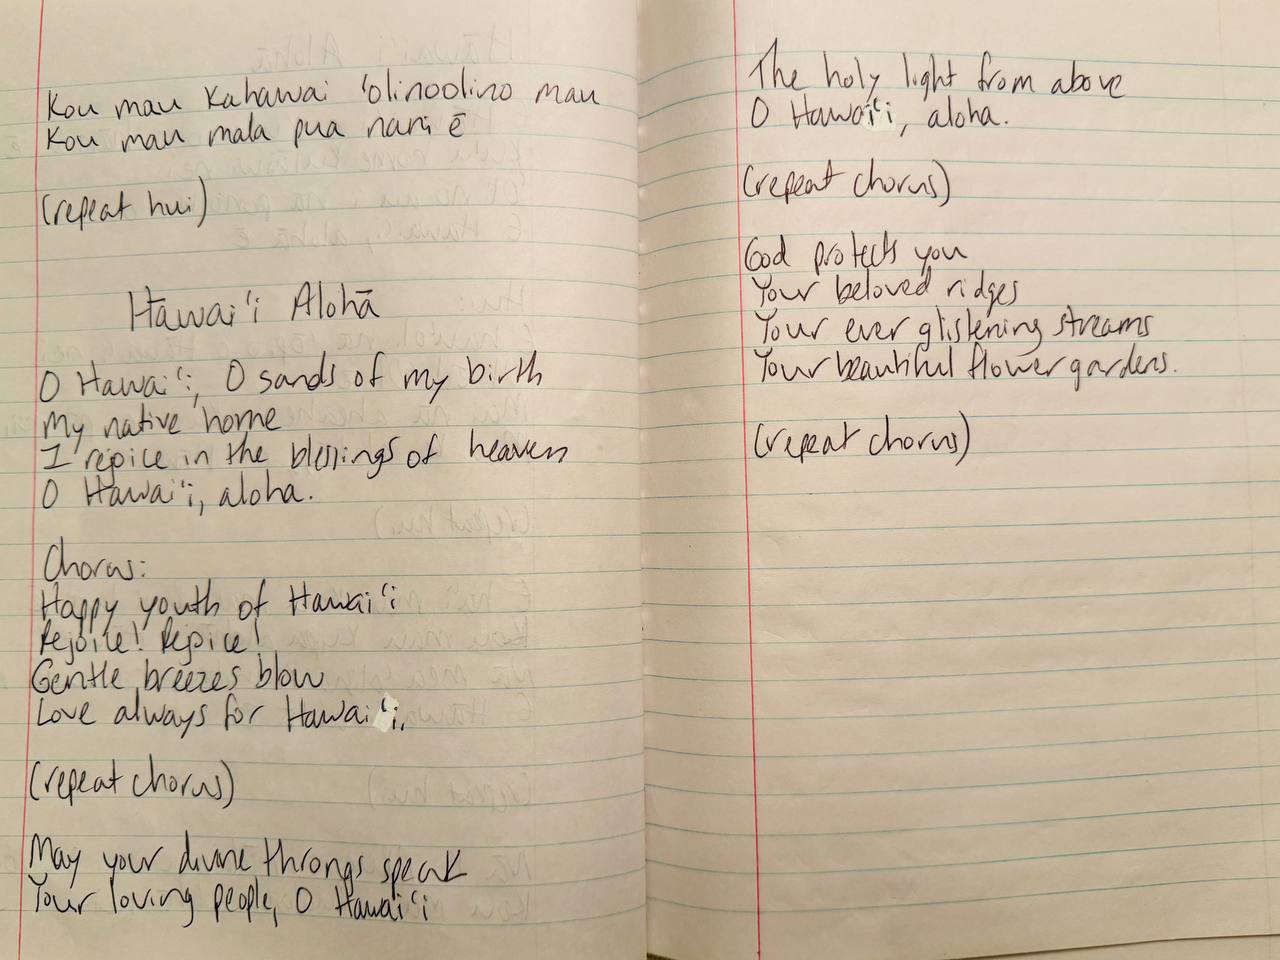 Kou mau Kahawai ʻolinoolino mau
Kou mau mala pua nani ē
(repeat hui)
Hawaiʻi Alohā
O Hawaiʻi, O sands of my birth
My native home
I rejoice in the blessings of heaven
O Hawaiʻi, aloha.
Chorus:
Happy youth of Hawaiʻi
Rejoice! Rejoice!
Gentle breezes blow
Love always for Hawaiʻi.
(repeat chorus)
May your divine throngs speak
Your loving people, O Hawaiʻi
The holy light from above
O Hawaiʻi, aloha.
(repeat chorus)
God protects you
Your beloved ridges
Your ever glistening streams
Your beautiful flower gardens.
(repeat chorus)